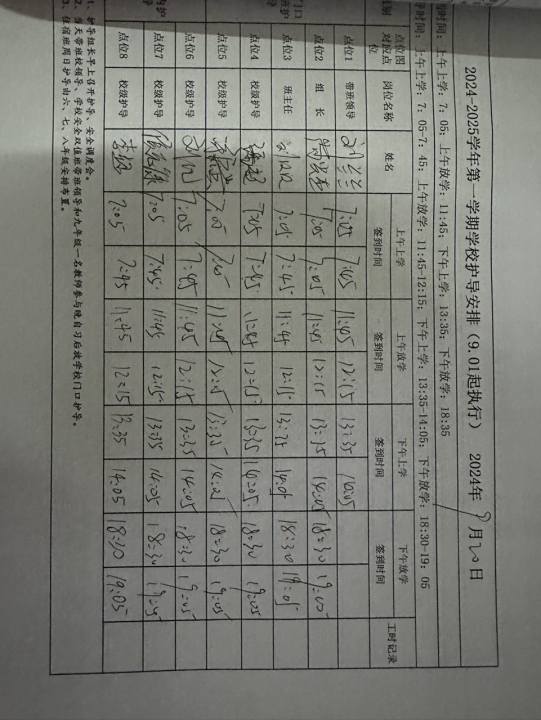 2024-2025学年第一学期学校护导安排（9.01起执行） 2024年 9 月20日
时间：上午上学：7：05；上午放学：11:45；下午上学：13:35；下午放学：18:35
时间：上午上学：7：05-7：45；上午放学：11:45-12:15；下午上学：13:35-14:05；下午放学：18:30-19：05
点位图对应点位 岗位名称 姓名 上午上学签到时间 上午放学签到时间 下午上学签到时间 下午放学签到时间 工时记录
点位1 带班领导 7:05 7:45 11:45 12:15 13:35 14:05
点位2 组 长 7:05 7:45 11:45 12:15 13:35 14:05 18:30 19:05
点位3 班主任 7:05 7:45 11:45 12:15 13:35 14:05 18:30 19:05
点位4 校级护导 7:05 7:45 11:45 12:15 13:35 14:05 18:30 19:05
点位5 校级护导 7:05 7:45 11:45 12:15 13:35 14:05 18:30 19:05
点位6 校级护导 7:05 7:45 11:45 12:15 13:35 14:05 18:30 19:05
点位7 校级护导 7:05 7:45 11:45 12:15 13:35 14:05 18:30 19:05
点位8 校级护导 7:05 7:45 11:45 12:15 13:35 14:05 18:30 19:05
1、护导组长早上召开护导、安全调度会。
2、当天带班校领导、学校安全双值班带班领导和九年级一名教师参与晚自习后放学校门口护导。
3、住宿班周日护导由六、七、八年级安排布置。